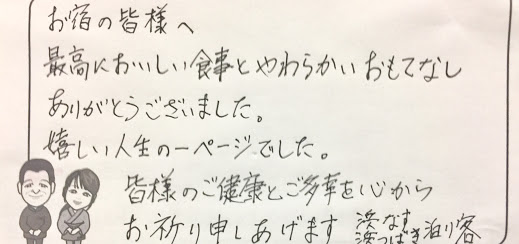 お宿の皆様へ
最高においしい食事とやわらかいおもてなし
ありがとうございました。
嬉しい人生の一ページでした。
皆様のご健康とご多幸を心から
お祈り申しあげます 浜なす
浜つばき 泊り客